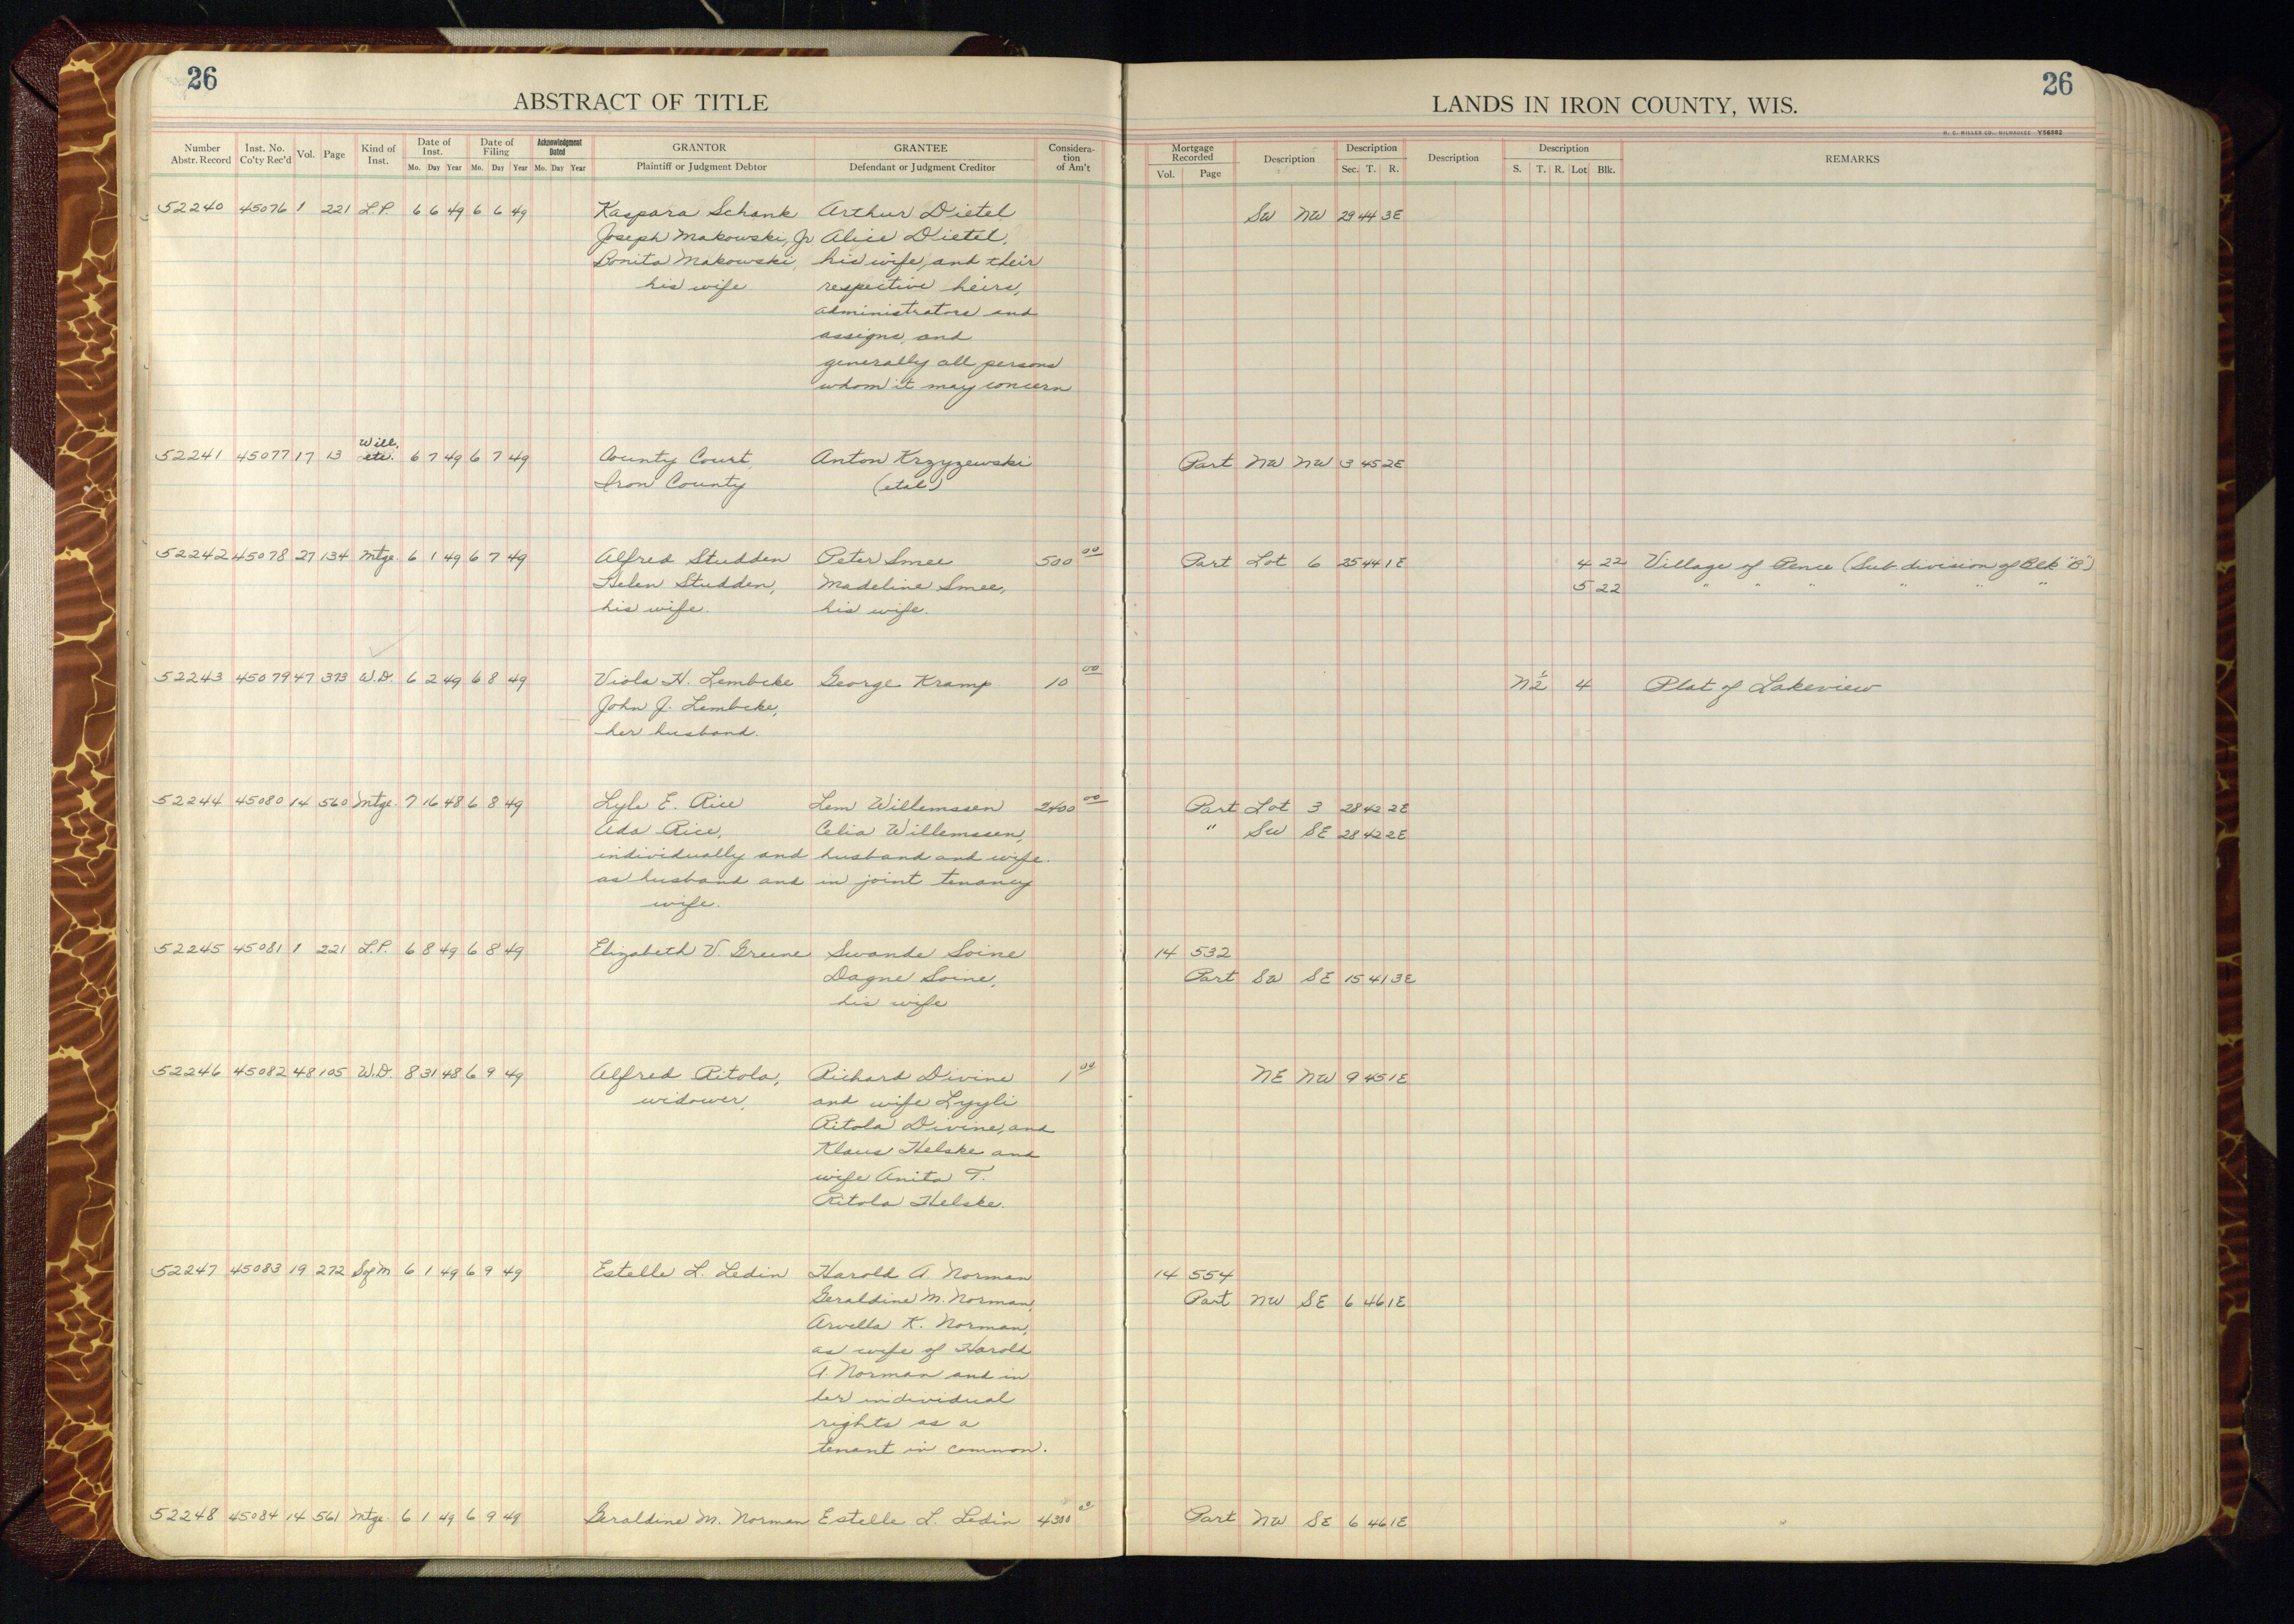 26
ABSTRACT OF TITLE
LANDS IN IRON COUNTY, WIS.
26
H. C. MILLER CO., MILWAUKEE V56562
Number Abstr. Record Inst. No. Co'ty Rec'd Vol. Page Kind of Inst. Date of Inst. Mo. Day Year Date of Filing Mo. Day Year Acknowledgment Dated Mo. Day Year GRANTOR Plaintiff or Judgment Debtor GRANTEE Defendant or Judgment Creditor Consideration of Am't
Mortgage Recorded Vol. Page Description Description Sec. T. R. Description Description S. T. R. Lot Blk. REMARKS
52240 45076 1 221 L.P. 6 6 49 6 6 49 Kaspara Schank Arthur Dietel SW NW 29 44 3E
Joseph Makowski, Jr. Alice Dietel,
Bonita Makowski, his wife, and their
his wife respective heirs,
administrators and
assigns, and
generally all persons
whom it may concern
Will,
52241 45077 17 13 etc. 6 7 49 6 7 49 County Court, Anton Krzyzewski Part NW NW 3 45 2E
Iron County (etal)
52242 45078 27 134 Mtge. 6 1 49 6 7 49 Alfred Studden Peter Smee 500 00 Part Lot 6 25 44 1E 4 22 Village of Pence (Sub. division of Blk "B")
Helen Studden, Madeline Smee, 5 22 " " " " " "
his wife. his wife.
52243 45079 47 373 W.D. 6 2 49 6 8 49 Viola H. Lembcke George Kramp 10 00 N½ 4 Plat of Lakeview
John J. Lembcke,
her husband.
52244 45080 14 560 Mtge. 7 16 48 6 8 49 Lyle E. Rice Lem Willemssen 2400 00 Part Lot 3 28 42 2E
Ada Rice, Celia Willemssen, " SW SE 28 42 2E
individually and husband and wife.
as husband and in joint tenancy
wife.
52245 45081 1 221 L.P. 6 8 49 6 8 49 Elizabeth V. Greene Swande Soine 14 532
Dagne Soine, Part SW SE 15 41 3E
his wife
52246 45082 48 105 W.D. 8 31 48 6 9 49 Alfred Ritola, Richard Divine 1 00 NE NW 9 45 1E
widower, and wife Lyyli
Ritola Divine, and
Klaus Helske and
wife Anita T.
Ritola Helske.
52247 45083 19 272 Sof M 6 1 49 6 9 49 Estelle L. Ledin Harold A. Norman 14 554
Geraldine M. Norman, Part NW SE 6 46 1E
Arvella K. Norman,
as wife of Harold
A. Norman and in
her individual
rights as a
tenant in common.
52248 45084 14 561 Mtge. 6 1 49 6 9 49 Geraldine M. Norman Estelle L. Ledin 4300 00 Part NW SE 6 46 1E